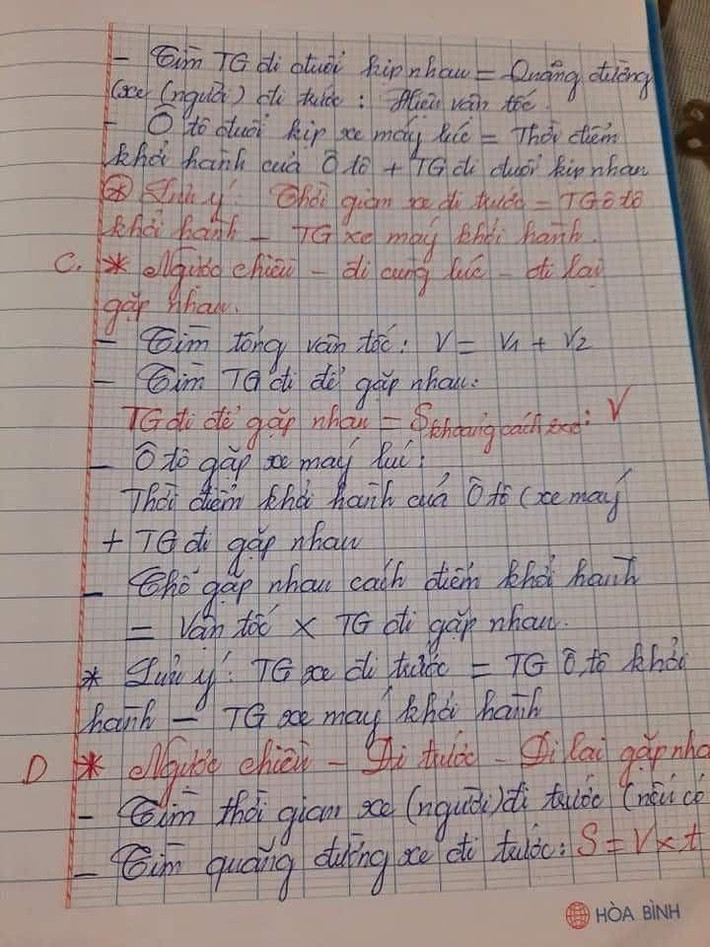 - Tìm TG đi đuổi kịp nhau = Quãng đường
(xe (người) đi trước : Hiệu vận tốc.
- Ô tô đuổi kịp xe máy lúc = Thời điểm
khởi hành của Ô tô + TG đi đuổi kịp nhau
* Lưu ý: Thời gian xe đi trước = TG ô tô
khởi hành - TG xe máy khởi hành.
C. * Ngược chiều - đi cùng lúc - đi lại
gặp nhau.
- Tìm tổng vận tốc: V = V1 + V2
- Tìm TG đi để gặp nhau:
TG đi để gặp nhau = S khoảng cách 2 xe : V
- Ô tô gặp xe máy lúc:
Thời điểm khởi hành của Ô tô (xe máy
+ TG đi gặp nhau
- Chỗ gặp nhau cách điểm khởi hành
= Vận tốc × TG đi gặp nhau.
* Lưu ý: TG xe đi trước = TG Ô tô khởi
hành - TG xe máy khởi hành
D * Ngược chiều - Đi trước - Đi lại gặp nha
- Tìm thời gian xe (người) đi trước (nếu có
- Tìm quãng đường xe đi trước: S = V × t
HÒA BÌNH